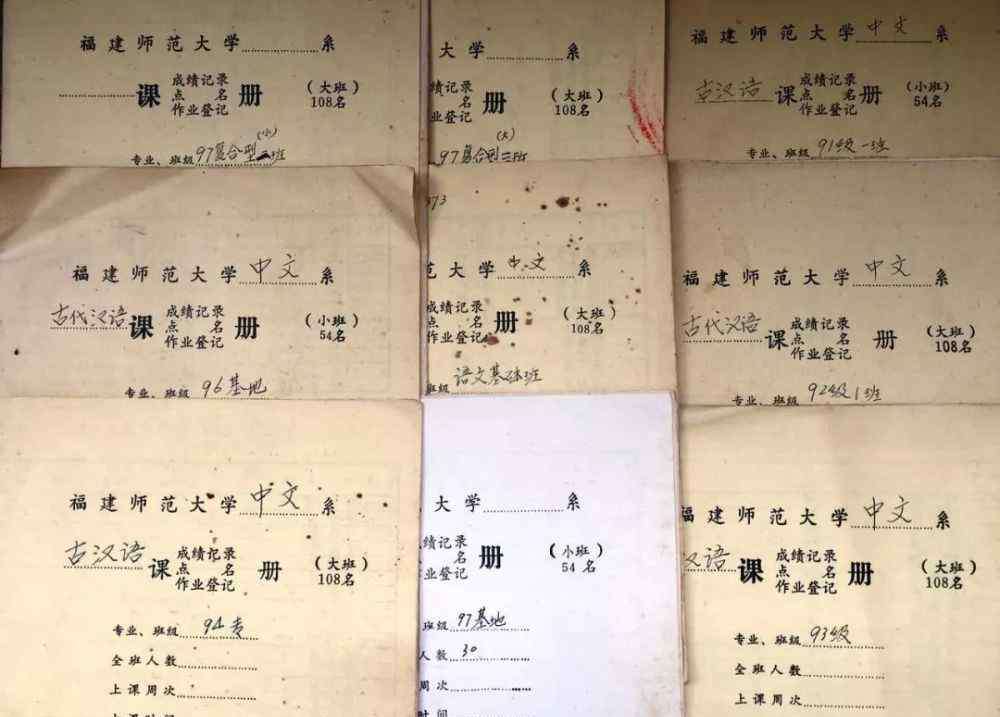 福建师范大学………………系
………………课 成绩记录 册 （大班）
点 名 108名
作业登记
(小)
专业、班级 97复合型二班
大学………………系
绩记录 册 （大班）
名 108名
业登记
(大)
97复合型二班
福建师范大学 中文 系
古汉语 课 成绩记录 册 （小班）
点 名 54名
作业登记
专业、班级 91级一班
福建师范大学 中文 系
古代汉语 课 成绩记录 册 （小班）
点 名 54名
作业登记
专业、班级 96基地
范大学 中文 系
成绩记录 册 （大班）
点 名 108名
作业登记
班级 语文基础班
福建师范大学 中文 系
古代汉语 课 成绩记录 册 （大班）
点 名 108名
作业登记
专业、班级 92级1班
福建师范大学 中文 系
古汉语 课 成绩记录 册 （大班）
点 名 108名
作业登记
专业、班级 94专
全班人数………………
上课周次………………
大学………………系
绩记录 册 （小班）
名 54名
业登记
班级 97基地
人数 30
周次………………
时间
福建师范大学 中文 系
汉语 课 成绩记录 册 （大班）
点 名 108名
作业登记
专业、班级 93级
全班人数………………
上课周次………………